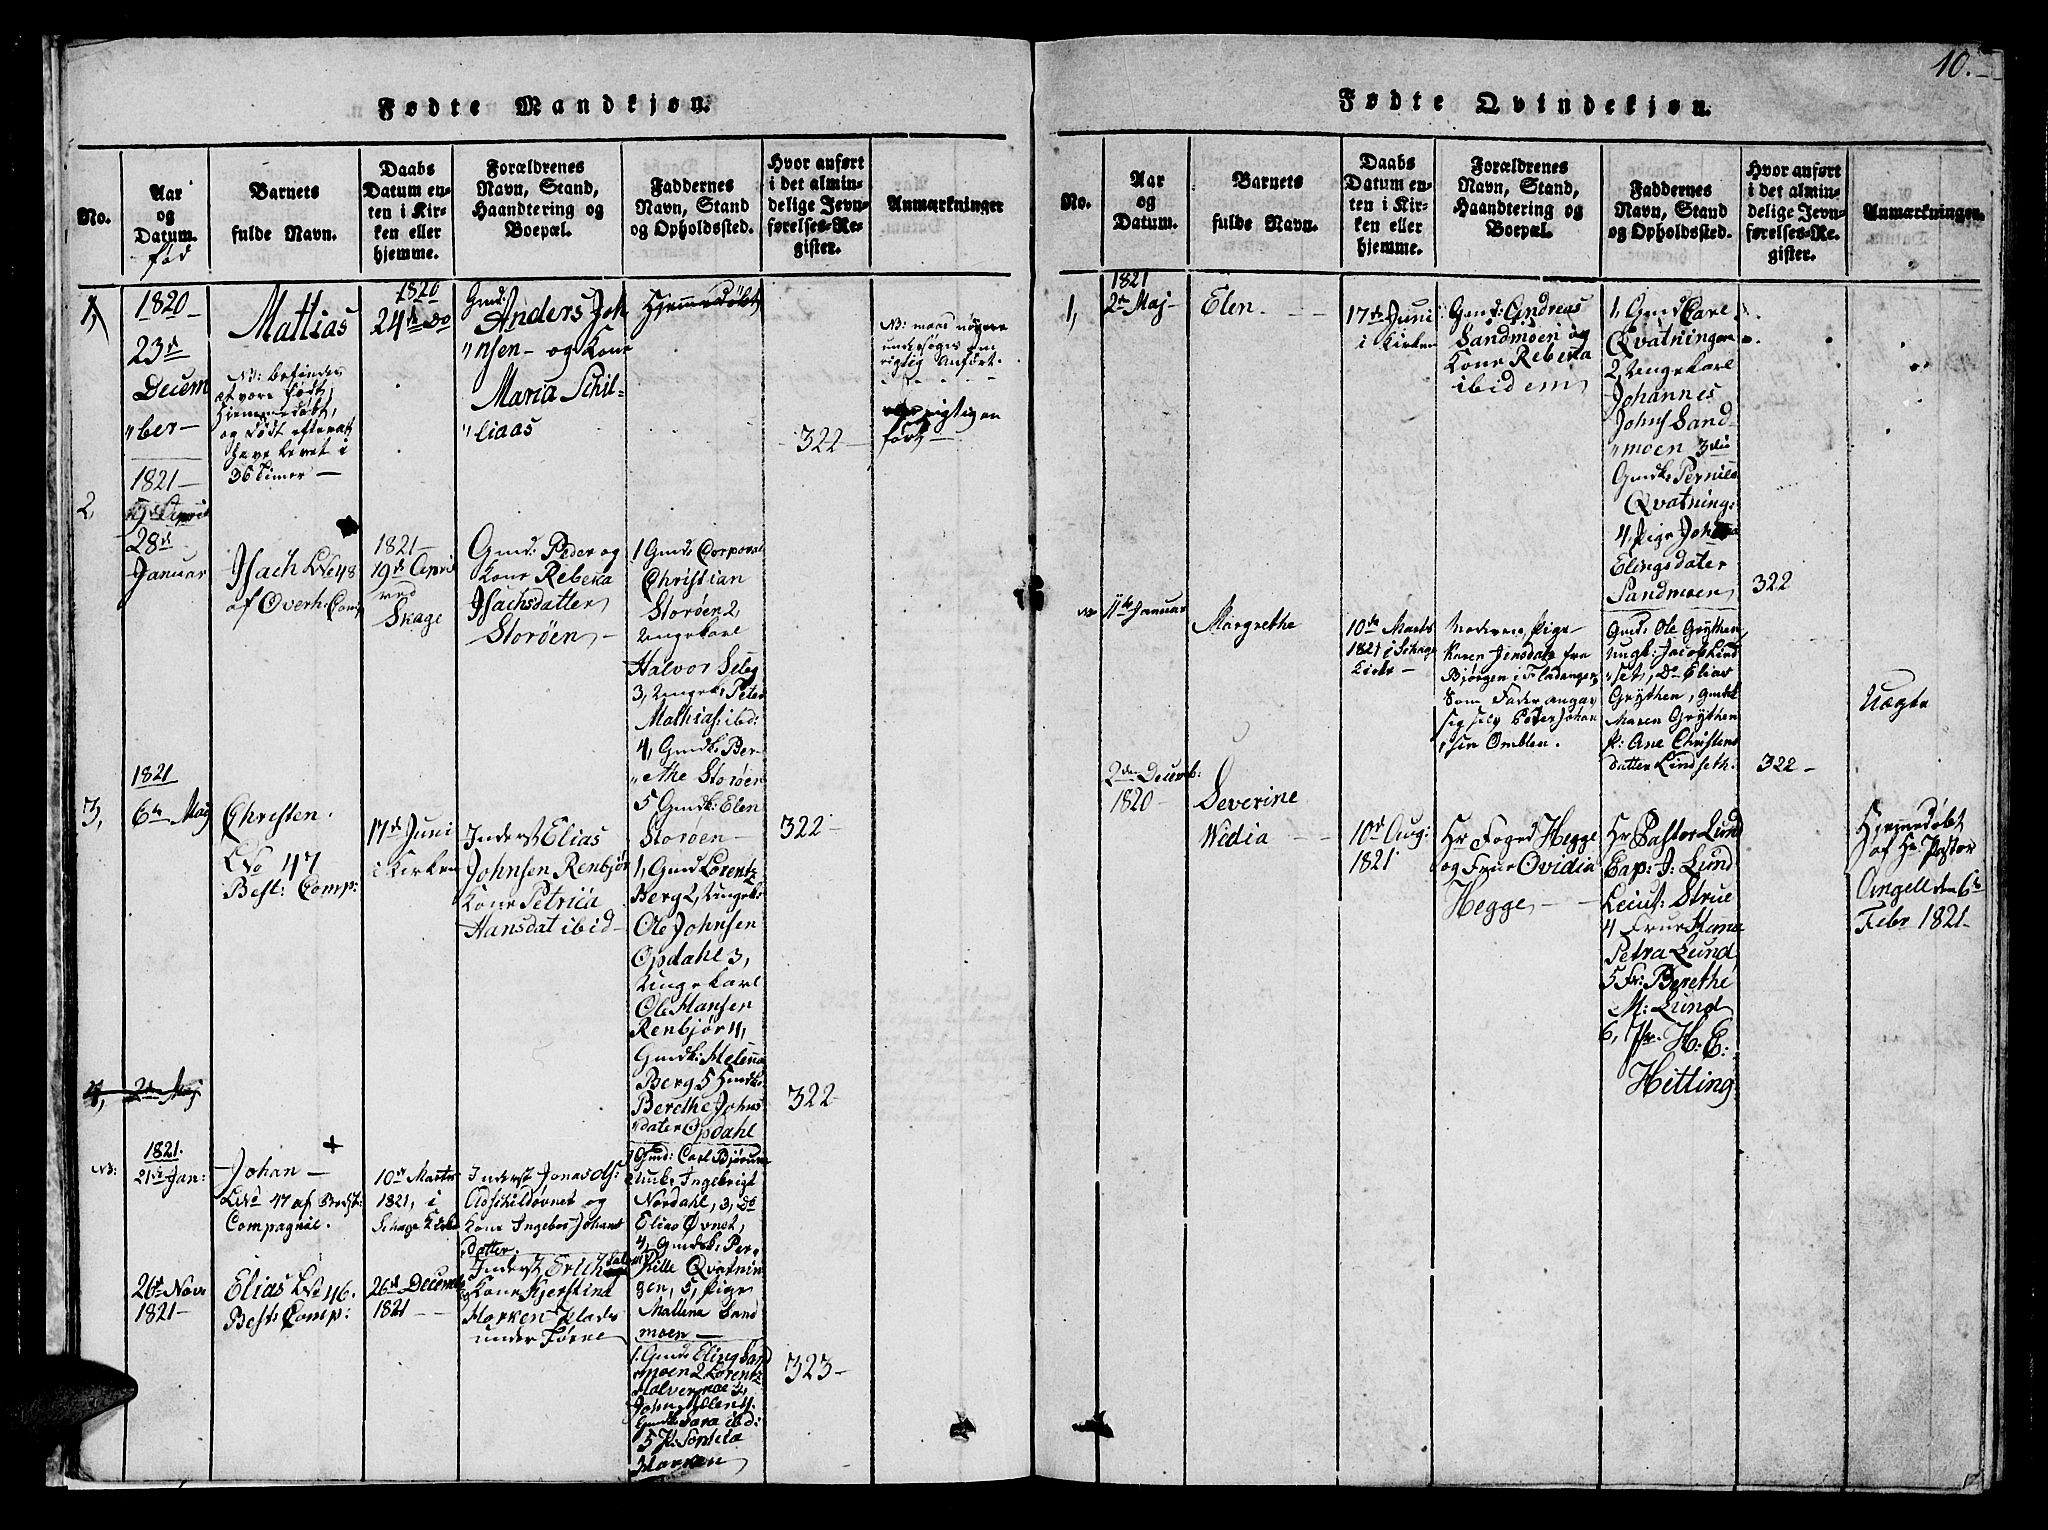 10.
Fødte Mandkjøn.
No.
Aar
og
Datum.
fød
Barnets
fulde Navn.
Daabs
Datum en-
ten i Kir-
ken eller
hjemme.
Forældrenes
Navn, Stand,
Haandtering og
Boepæl.
Faddernes
Navn, Stand
og Opholdssted.
Hvor anført
i det almin-
delige Jevn-
førelses-Re-
gister.
Anmærkninger
1,
1820
23de
Decem
"ber-
Mattias
NB: befindes
at være født,
hjemmedøbt,
og død efter at
have levet i
36 Timer-
1820
24de Do
Gmd:
Anders Joh
"nsen- og Kone
Maria Schil-
"liaas
Hjemmedøbt
322-
NB: maae nøyere
undersøges om
rigtig Anført.
er rigtig an
ført-
2,
1821-
28de
Januar
Isach LNo 48
af Overh: Comp
1821-
19de April
ved
Skage
Gmd: Peder og
Kone Rebeka
Isachsdatter
Storöen-
1 Gmd: Corporal
Christian
Storöen 2,
Ungekarl
Halvor Selog
3, Ungek: Peter
Mathias: ibd:
4, Gmdk: Ber-
"ethe Storöen
5 Gmdk: Elen
Storöen-
322-
3,
1821
6te Maj
Christen.
LNo 47
Best: Comp:
17de Juni
i Kirken
Inderst Elias
Johnsen Renbjör
Kone Petrica
Hansdat ibid-
1, Gmd Lorentz
Berg 2, Ungek:
Ole Johnsen
Opdahl 3,
Ungekarl
Ole Hansen
Renbjör 4,
Gmdk: Helena
Berg 5 Gmdk:
Berethe Johns
"dater Opdahl
322-
4, 2de Maj
NB:
1821.
21de Jan:
Johan-
LNo 47 af Bests:
Compagnie.
10de Marts
1821, i
Schage Kirke
Inderst Jonas Ols:
Adschildövnet og
Kone Ingebor Johans
datter.
1 Gmd: Carl Bjørum
2 Unk: Ingebrigt
Nordahl, 3, Do
Elias Øvnet,
4, Gmdsk: Per-
nille Qvatnin-
gen, 5, Pige
Mallena Sand
moen-
26de Novr
1821-
Elias LNo 46.
Best: Comp:
26de Decemb
1821-
Inderst Erich
Kone Kjerstina
Morken Plads
under Törne
1. Gmd: Eling Sand
"moen 2 Lorentz
Halvermoe 3,
Gmdk: Sara ibd:
5 P: Sophia
Morken
323-
Fødte Qvindekjøn.
No.
Aar
og
Datum.
Barnets
fulde Navn.
Daabs
Datum en-
ten i Kir-
ken eller
hjemme.
Forældrenes
Navn, Stand,
Haandtering og
Boepæl.
Faddernes
Navn, Stand
og Opholdssted.
Hvor anført
i det almin-
delige Jevn-
førelses-Re-
gister.
Anmærkninger.
1,
1821
2de Maj-
Elen
17de Juni
i Kirken
Gmd: Andreas
Sandmoen og
Kone Rebeka
ibidem
1, Gmd Carl
Qvatningen
2, Ungekarl
Johannes
Johns Sand-
"moen 3die
Gmdk: Pernile
Qvatning:
4, Pige Johna
Elingsdater
Sandmoen
322
NB
11te Januar
Margrethe
10de Marts
1821 i Schage
Kirke-
Moderen, Pige
Karen Jensdatr fra
Bjørgen i Fladanger,
Som Fader angav
sig selv Peter Johan
"sen Omblen.
Gmd: Ole Grÿthen,
Ungk: Jacop Lind
"set, Do Elias
Grÿthen, Gmdsk
Maren Grÿthen
P: Ane Christens
datter Lindseth:
322-
Uægte
2den Decemb:
1820-
Severine
Widia
10de Aug:
1821
Hr Foged Hegge
og Frue Ovidia
Hegge
Hr Pastor Lund
Cap: J: Lund
Lieut: Strue
4 Frue Hanna
Petra Lund
5 Fr: Berethe
M: Lund
6, Jfr. H: E:
Hitting
Hjemmedøbt
af Hr Pastor
Angell den 6te
Febr 1821-